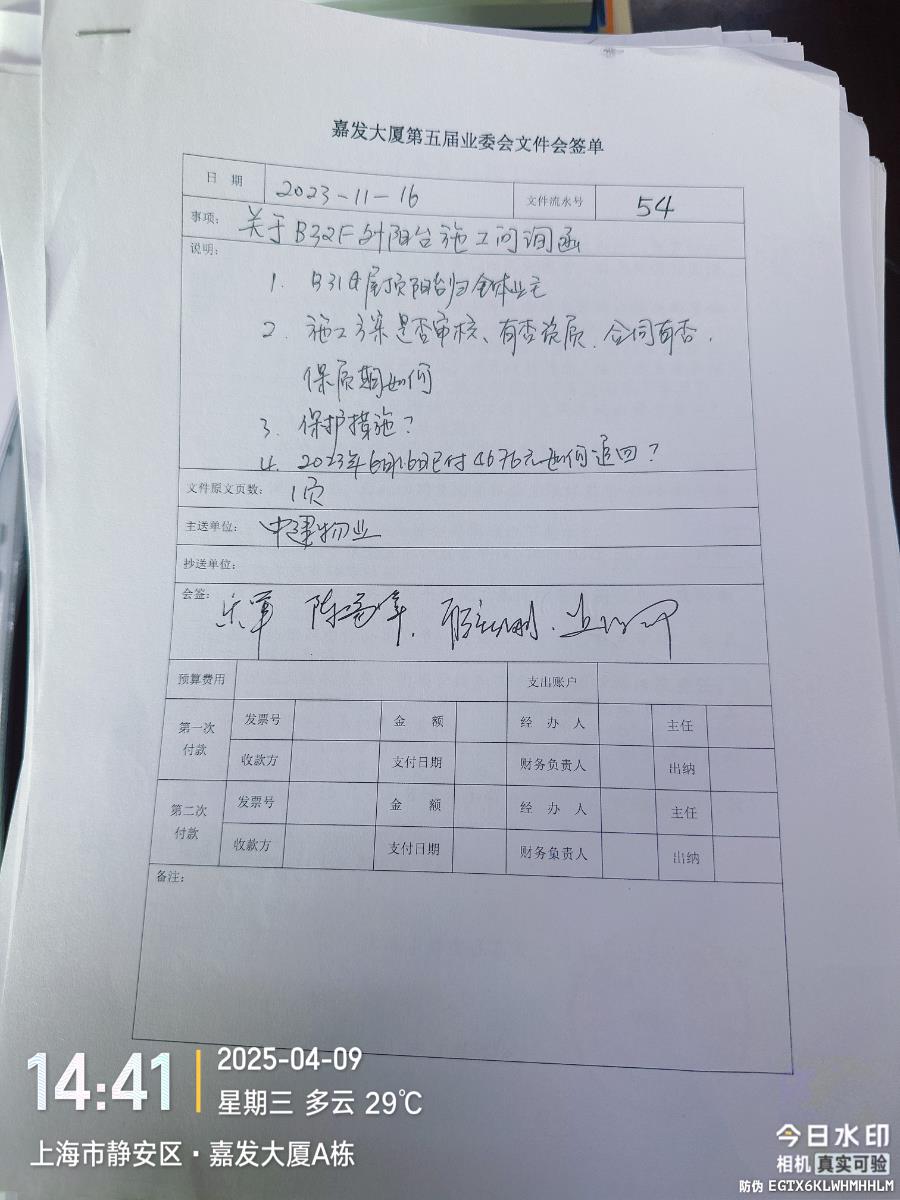 嘉发大厦第五届业委会文件会签单
日 期 2023-11-16 文件流水号 54
事项: 关于B32F外阳台施工问询函
说明:
1. B31G屋顶阳台归全体业主
2. 施工方案是否审核、有否资质、合同有否,
保质期如何
3. 保护措施?
4. 2023年6月16日已付4676元如何追回?
文件原文页数: 1页
主送单位: 中建物业
抄送单位:
会签:
预算费用 支出账户
第一次付款 发票号 金 额 经 办 人 主任
收款方 支付日期 财务负责人 出纳
第二次付款 发票号 金 额 经 办 人 主任
收款方 支付日期 财务负责人 出纳
备注:
14:41 2025-04-09
星期三 多云 29℃
上海市静安区·嘉发大厦A栋
今日水印
相机 真实可验
防伪 EGTX6KLWHMHHLM